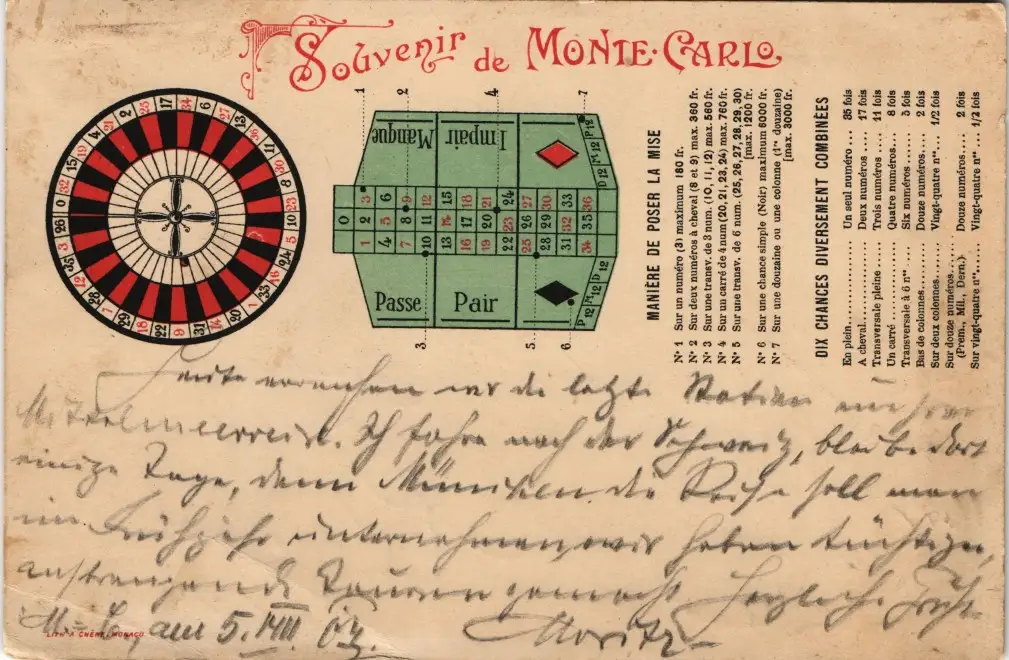 Souvenir de MONTE-CARLO
1 2 4 7
Manque
Impair
P12 M12 D12
0
3 6 9 12 15 18 21 24 27 30 33 36
2 5 8 11 14 17 20 23 26 29 32 35
1 4 7 10 13 16 19 22 25 28 31 34
Passe
Pair
P12 M12 D12
3. 5. 6.
MANIÈRE DE POSER LA MISE
N° 1 Sur un numéro (3) maximum 180 fr.
N° 2 Sur deux numéros à cheval (8 et 9) max. 360 fr.
N° 3 Sur une transv. de 3 num. (10, 11, 12) max. 560 fr.
N° 4 Sur un carré de 4 num (20, 21, 23, 24) max. 760 fr.
N° 5 Sur une transv. de 6 num. (25, 26, 27, 28, 29, 30)
[max. 1200 fr.
N° 6 Sur une chance simple (Noir) maximum 6000 fr.
N° 7 Sur une douzaine ou une colonne (1re douzaine)
[max. 3000 fr.
DIX CHANCES DIVERSEMENT COMBINÉES
En plein.......... Un seul numéro ... 35 fois
A cheval.......... Deux numéros ... 17 fois
Transversale pleine .... Trois numéros ... 11 fois
Un carré ......... Quatre numéros... 8 fois
Transversale à 6 nos ... Six numéros ..... 5 fois
Bas de colonnes....... Douze numéros... 2 fois
Sur deux colonnes....... Vingt-quatre nos... 1/2 fois
Sur douze numéros.......
(Prem., Mil., Dern.) Douze numéros.... 2 fois
Sur vingt-quatre nos..... Vingt-quatre nos... 1/2 fois
0 32 15 19 4 21 2 25 17 34 6 27 13 36 11 30 8 23 10 5 24 16 33 1 20 14 31 9 22 18 29 7 28 12 35 3 26
Heute erreichen wir die letzte Station unserer
Mittelmeerreise. Ich fahre nach der Schweiz, bleibe dort
einige Tage, dann München. die Reise soll man
im Frühjahr unternehmen, wir haben tüchtige,
anstrengende Touren gemacht Herzliche
M.-C. am 5. VIII 03. Moritz
LITH. A CHÊNE, MONACO